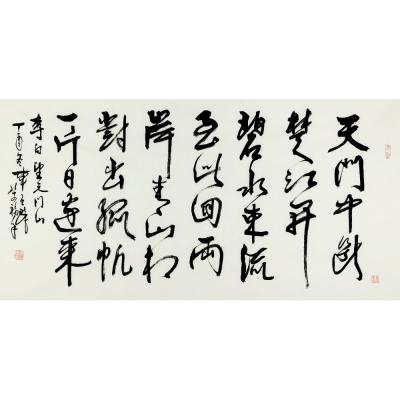 天門中斷
楚江開
碧水東流
至此回兩
岸青山相
對出孤帆
一片日邊來
李白望天门山
丁酉冬